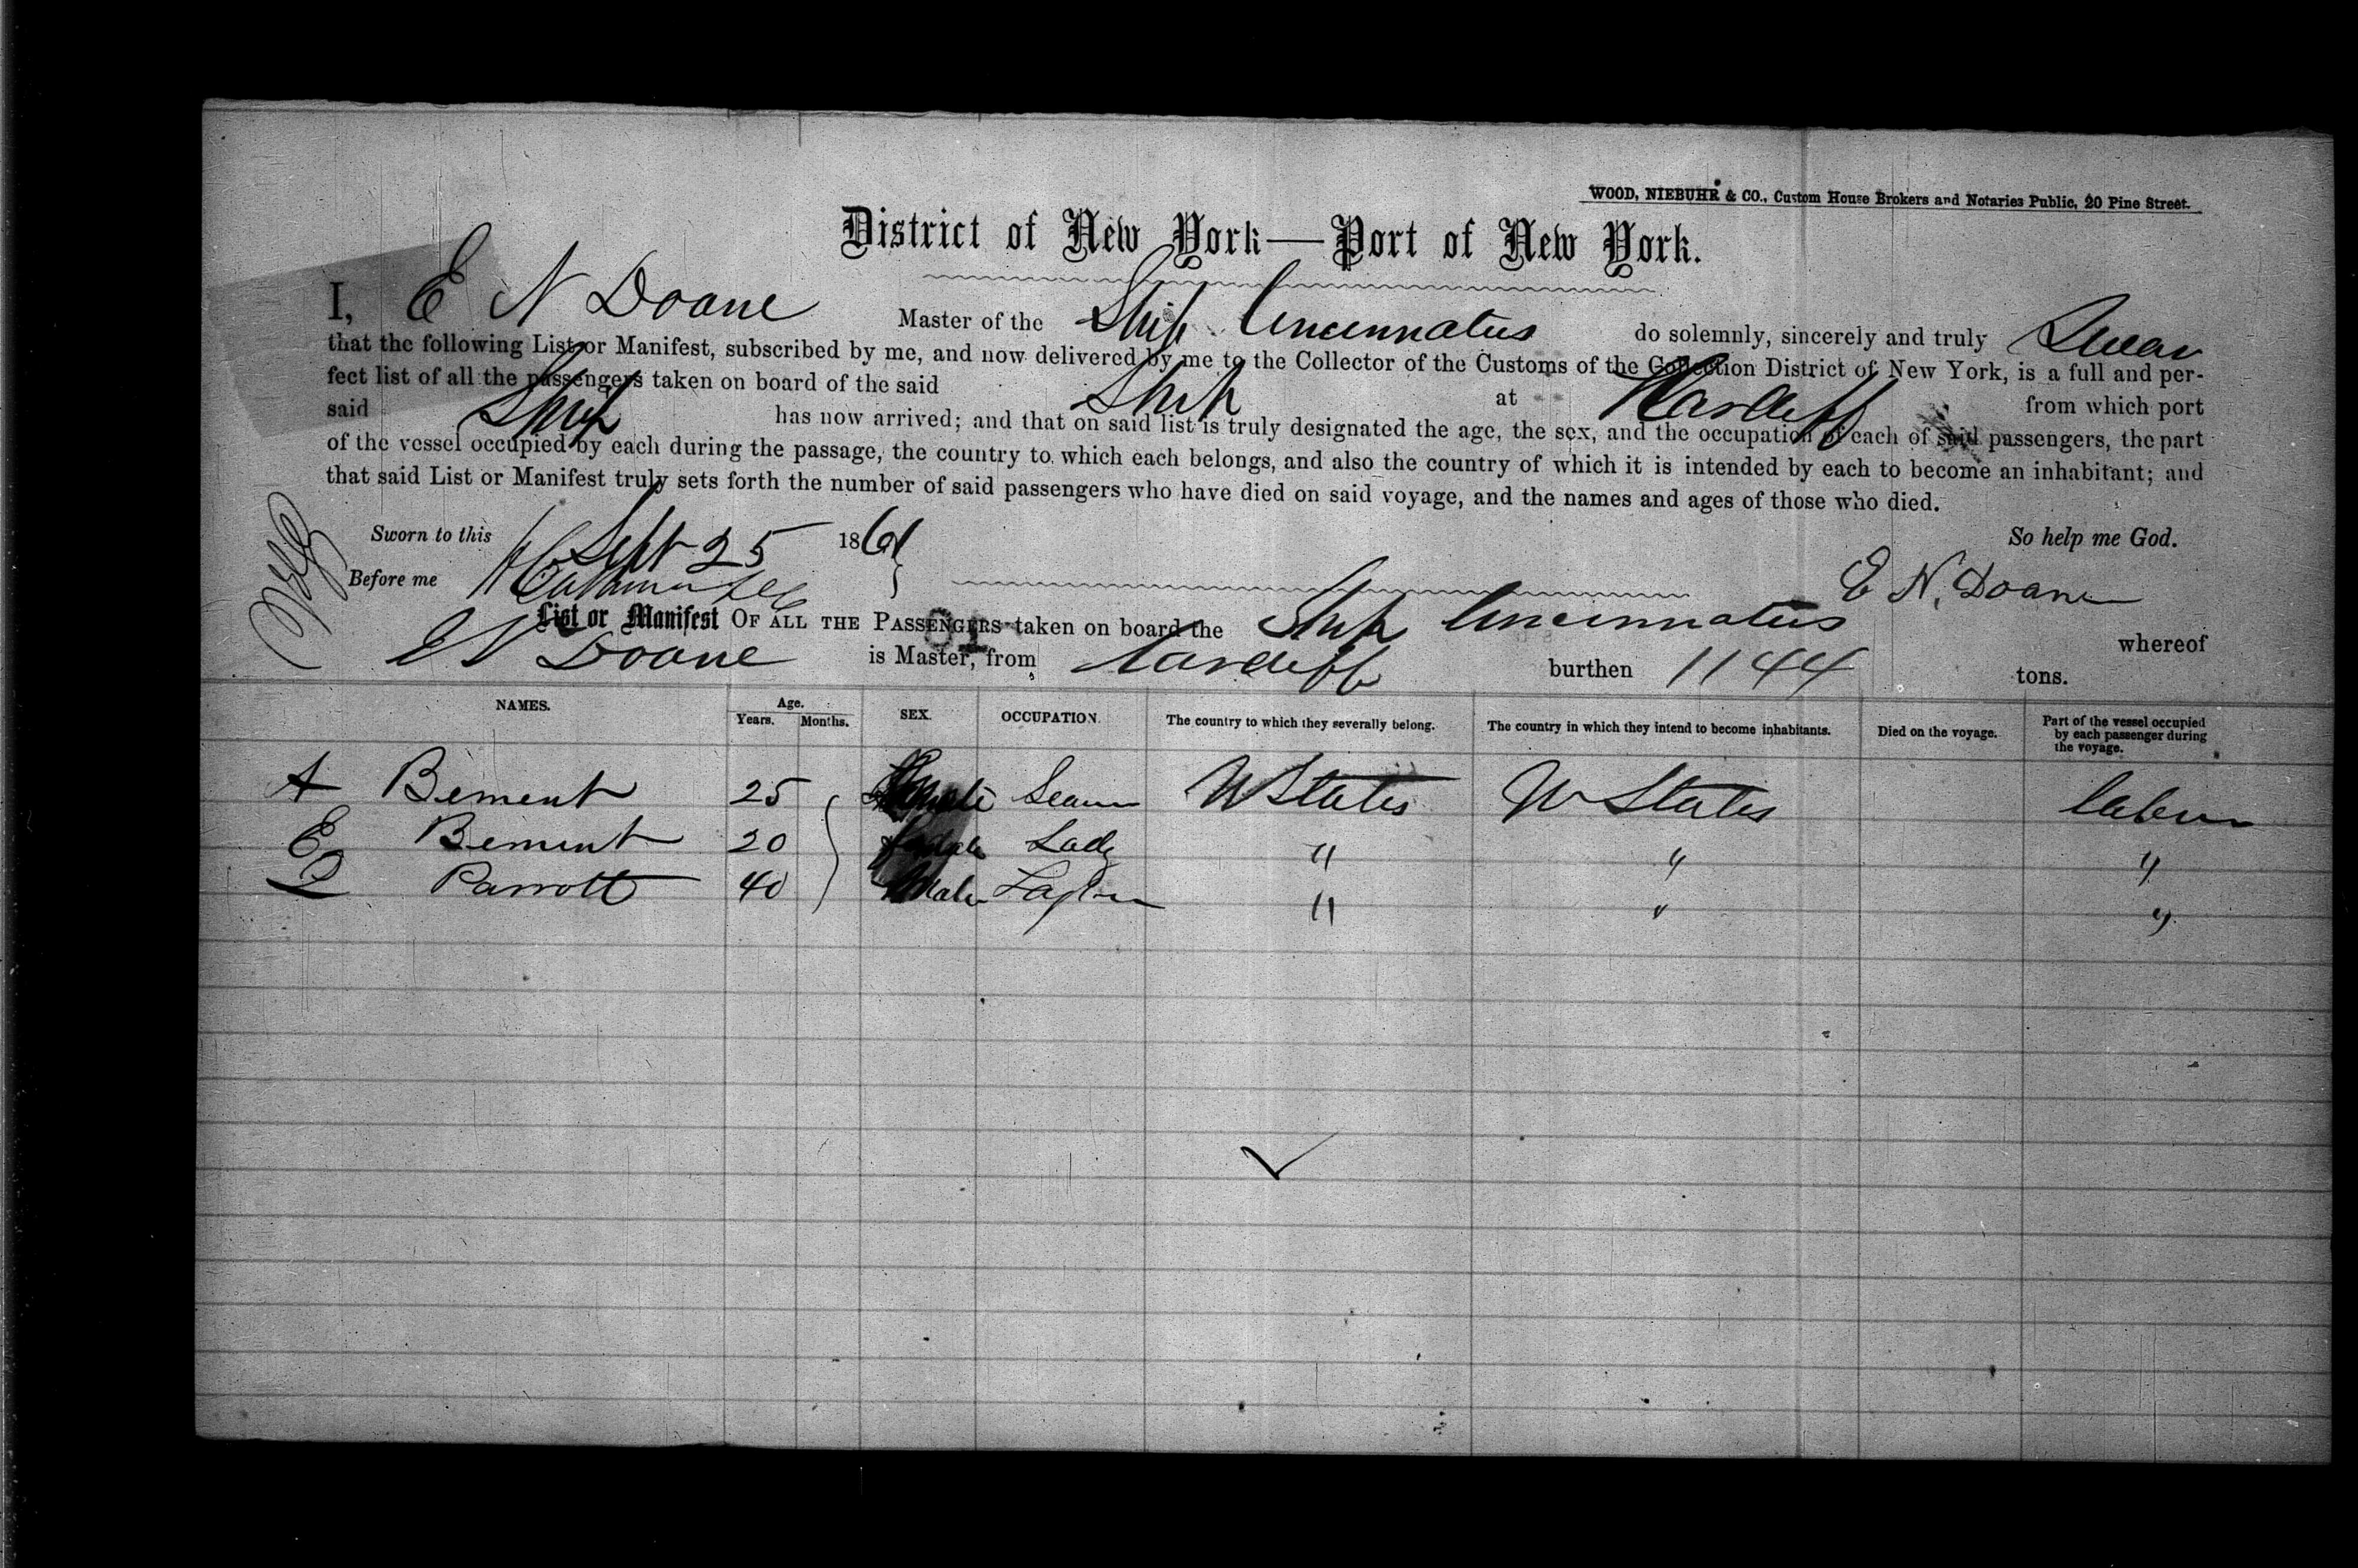 WOOD, NIEBUHR & CO., Custom House Brokers and Notaries Public, 20 Pine Street.
District of New York—Port of New York.
I, E N Doane Master of the Ship Cincinnatus do solemnly, sincerely and truly Swear
that the following List or Manifest, subscribed by me, and now delivered by me to the Collector of the Customs of the Collection District of New York, is a full and per-
fect list of all the passengers taken on board of the said Ship at Cardiff from which port
said Ship has now arrived; and that on said list is truly designated the age, the sex, and the occupation of each of said passengers, the part
of the vessel occupied by each during the passage, the country to which each belongs, and also the country of which it is intended by each to become an inhabitant; and
that said List or Manifest truly sets forth the number of said passengers who have died on said voyage, and the names and ages of those who died.
Sworn to this Sept 25 1861 So help me God.
Before me E N. Doane
List or Manifest OF ALL THE PASSENGERS taken on board the Ship Cincinnatus whereof
E N Doane is Master, from Cardiff burthen 1144 tons.
NAMES. Age. Years. Months. SEX. OCCUPATION. The country to which they severally belong. The country in which they intend to become inhabitants. Died on the voyage. Part of the vessel occupied by each passenger during the voyage.
A Bement 25 Male U States U States Cabin
E Bement 20 Female Lady " " "
Parrott 40 Male " " "